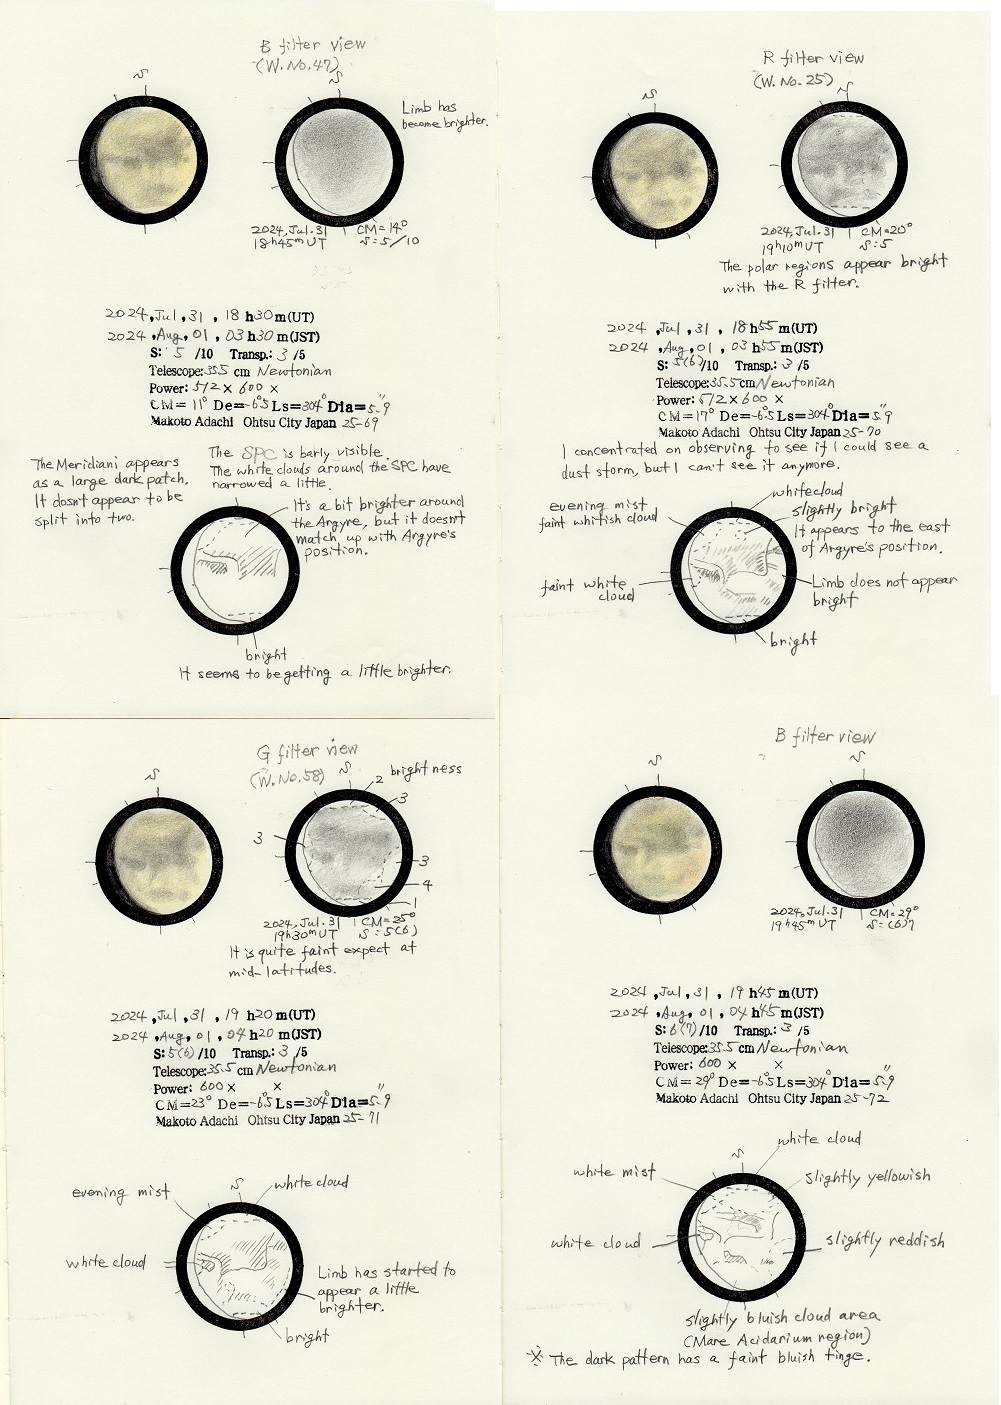 B filter view
(W. No. 47)
S
S
Limb has
become brighter.
2024, Jul. 31
18h45m UT
CM=14°
S:5/10
2024, Jul, 31, 18 h30 m(UT)
2024, Aug, 01, 03 h30 m(JST)
S: 5 /10 Transp.: 3 /5
Telescope:35.5 cm Newtonian
Power: 512 × 600 ×
CM= 11° De=-6.5° Ls=304° Dia=5.″9
Makoto Adachi Ohtsu City Japan 25-69
The Meridiani appears
as a large dark patch.
It dosn't appear to be
split into two.
The SPC is barly visible.
The white clouds around the SPC have
narrowed a little.
It's a bit brighter around
the Argyre, but it doesn't
match up with Argyre's
position.
bright
It seems to be getting a little brighter.
R filter view
(W. No. 25)
S
S
2024, Jul. 31
19h10m UT
CM=20°
S:5
The polar regions appear bright
with the R filter.
2024, Jul, 31, 18 h55 m(UT)
2024, Aug, 01, 03 h55 m(JST)
S: 5(6)/10 Transp.: 3 /5
Telescope:35.5 cm Newtonian
Power: 512 × 600 ×
CM=17° De=-6.5° Ls=304° Dia=5.″9
Makoto Adachi Ohtsu City Japan 25-70
I concentrated on observing to see if I could see a
dust storm, but I can't see it anymore.
evening mist
faint whitish cloud
white cloud
slightly bright
It appears to the east
of Argyre's position.
faint white
cloud
Limb does not appear
bright
bright
G filter view
(W. No. 58)
S
S
2 brightness
3
3
3
4
1
2024, Jul. 31
19h30m UT
CM=25°
S:5(6)
It is quite faint expect at
mid-latitudes.
2024, Jul, 31, 19 h20 m(UT)
2024, Aug, 01, 04 h20 m(JST)
S: 5(6) /10 Transp.: 3 /5
Telescope:35.5 cm Newtonian
Power: 600 × ×
CM=23° De=-6.5° Ls=304° Dia=5.″9
Makoto Adachi Ohtsu City Japan 25-71
evening mist
S
white cloud
white cloud
Limb has started to
appear a little
brighter.
bright
B filter view
S
S
2024, Jul. 31
19h45m UT
CM=29°
S:(6)7
2024, Jul, 31, 19 h45 m(UT)
2024, Aug, 01, 04 h45 m(JST)
S: 6(7)/10 Transp.: 3 /5
Telescope:35.5 cm Newtonian
Power: 600 × ×
CM=29° De=-6.5° Ls=304° Dia=5.″9
Makoto Adachi Ohtsu City Japan 25-72
white cloud
S
white mist
slightly yellowish
white cloud
slightly reddish
slightly bluish cloud area
(Mare Acidarium region)
※ The dark pattern has a faint bluish tinge.